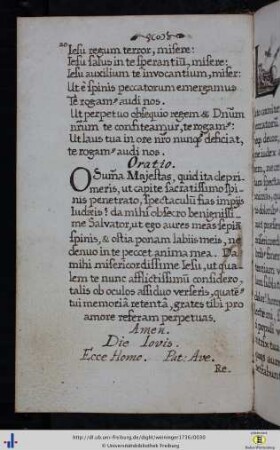 Iesu regum terror, misere:
Iesu salus in te sperantiū, misere:
Iesu auxilium te invocantium, miser:
Ut è spinis peccatorum emergamus
Te rogamꝰ audi nos.
Ut perpetuo obsequio regem & Dnūm
nrūm te confiteamur, te rogamꝰ:
Ut laus tua in ore nrō nunqꝫ deficiat,
te rogamꝰ audi nos.
Oratio.
O Suma Majestas, quid ita depri-
meris, ut capite sacratissimo spi-
nis penetrato, spectaculū fias impijs
Iudæis! da mihi obsecro benigniss-
me Salvator, ut ego aures meas sepiā
spinis, & ostia ponam labijs meis, ne
denuo in te peccet anima mea. Da
mihi misericordissime Iesu, ut qua-
lem te nunc afflictissimū considero,
talis ob oculos assiduo verseris, quatē-
tui memoriâ retentâ, grates tibi pro
amore referam perpetuas.
Amen.
Die Iovis.
Ecce Homo. Pat: Ave.
Re.
http://dl.ub.uni-freiburg.de/diglit/weininger1736/0030
© Universitätsbibliothek Freiburg